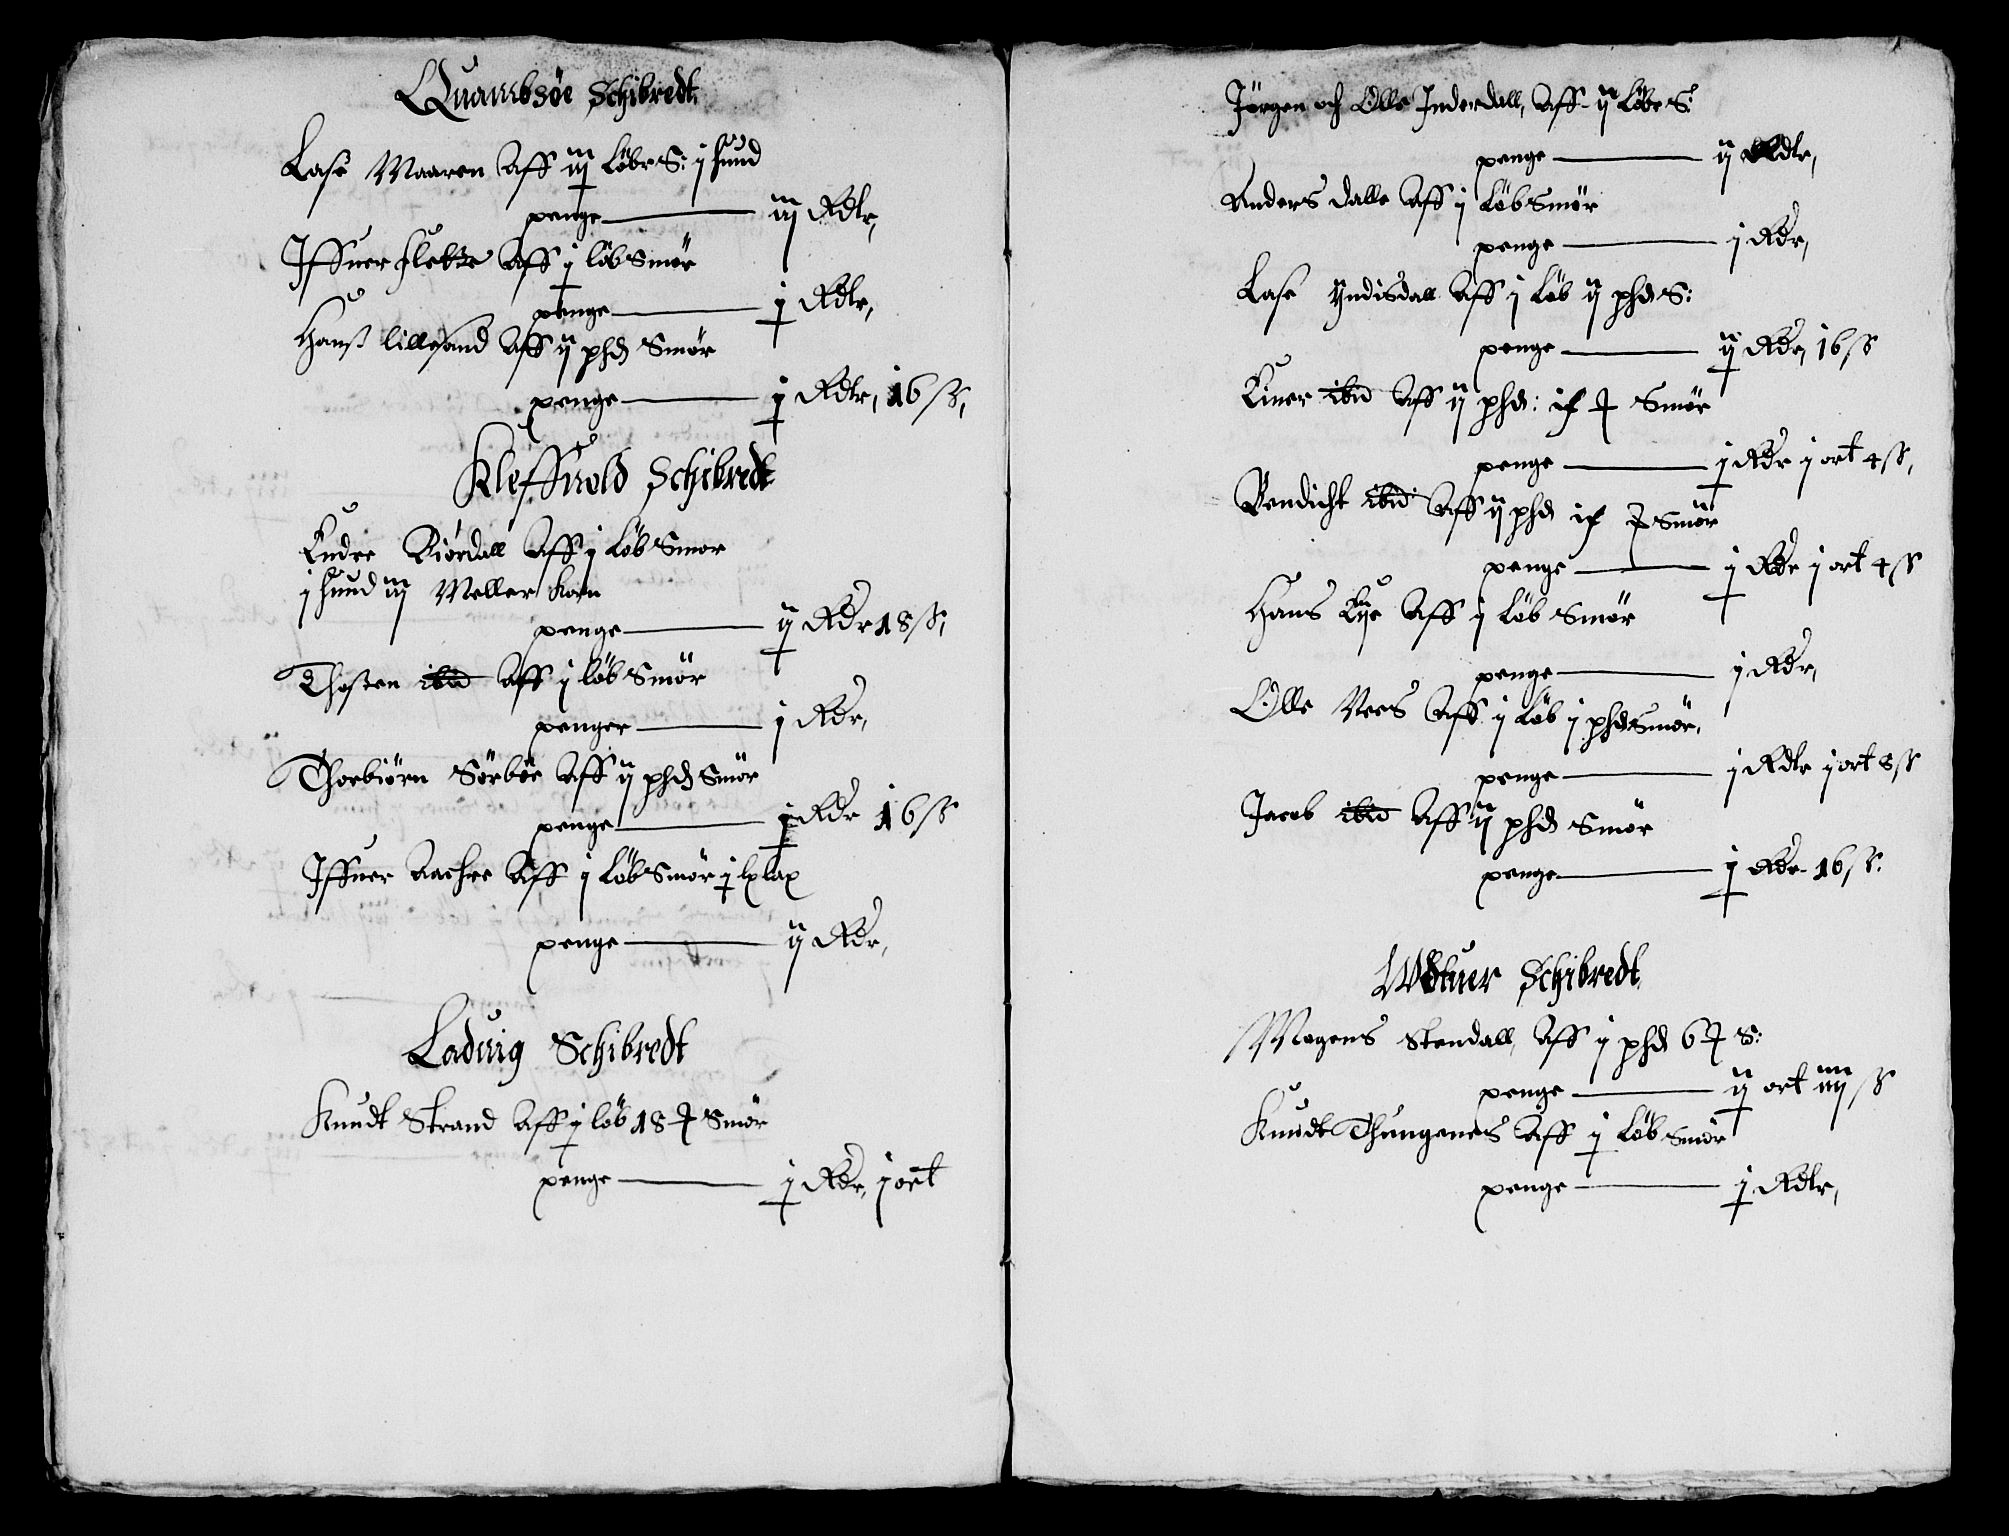 Quambsøe Schibredt
Lase Maaren Aff iij Løbe S: j hund
penge — iij Rdlr,
Iffuer flekke Aff j løb Smør
penge — j Rdlr,
Hanß lillesand Aff ij phd Smør
penge — j Rdlr, 16 ß,
Kleffuold Schibredt
Endre Biørdall Aff j Løb Smør
j hund iij Meller korn
penge — ij Rdr 18 ß,
Thosten ibid Aff j løb Smør
penger — j Rdr,
Thorbiørn Sørbøe Aff ij phd Smør
penge — j Rdr 16 ß
Iffuer Aachre Aff j Løb Smør j lax
penge — ij Rdr,
Laduig Schibredt
Knudt Strand Aff j løb 18 ꝉ Smør
penge — j Rdr, j ort
Jørgen och Olle Inderdall, Aff ij Løbe S:
penge — ij Rdlr,
Anders dalle Aff j Løb Smør
penge — j Rdr,
Lase yndisdall Aff j Løb ij phd S:
penge — ij Rdr, 16 ß
Einer ibid Aff ij phd: if ꝉ Smør
penge — j Rdr j ort 4 ß,
Bendicht ibid Aff ij phd if ꝉ Smør
penge — j Rdr j ort 4 ß
Hans Eye Aff j Løb Smør
penge — j Rdr,
Olle Nees Aff j Løb j phd Smør,
penge — j Rdlr j ort 8 ß
Jacob ibid Aff ij phd Smør
penge — j Rdr 16 ß:
Wdtuer Schibredt
Mogens Stendall, Aff j phd 6 ꝉ S:
penge — ij ort iiij ß
Knudt Thungenes Aff j Løb Smør
penge — j Rdlr,